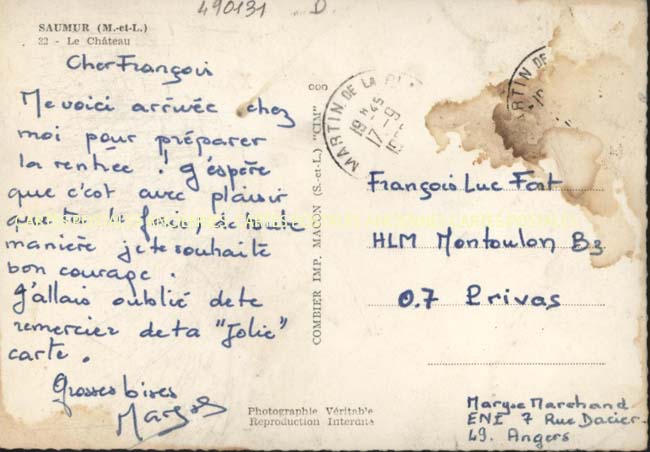 490131 D
SAUMUR (M.-et-L.)
22 - Le Château
Cher François
Me voici arrivée chez
moi pour préparer
la rentrée ! J'espère
que c'est avec plaisir
que tu la fais, de toute
manière je te souhaite
bon courage.
J'allais oublié de te
remercier de ta "Jolie"
carte.
Grosses bises
Maryse
COMBIER IMP. MACON (S.-et-L.) "CIM"
MARTIN DE LA
19 H 45
17 - 9
MARTIN DE
François Luc Fort
HLM Montoulon B3
07 Privas
Photographie Véritable
Reproduction Interdite
Maryse Marchand
ENI 7 Rue Dacier
49. Angers